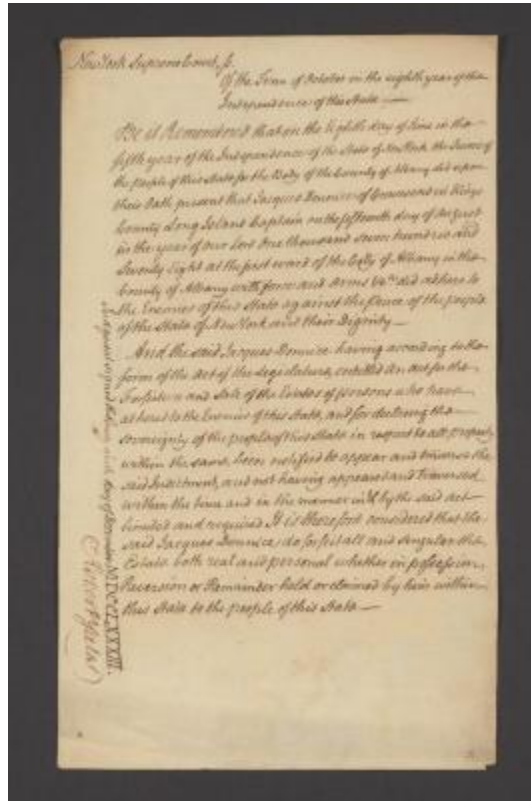 New York Supreme Court, ss.
Of the Term of October in the eighth year of the
Independence of this State —
Be it Remembered that on the Eighth day of June in the
fifth year of the Independence of the State of New York the Jurors of
the People of this State for the Body of the County of Albany did upon
their Oath present that Jacques Dennice of in Kings
County Long Island Captain on the fifteenth day of August
in the year of our Lord One thousand seven hundred and
Seventy Eight at the first ward of the City of Albany in the
County of Albany with force and arms &ca. did adhere to
the Enemies of this State against the Peace of the people
of the State of New York and their Dignity —
And the said Jacques Dennice having according to the
form of the Act of the Legislature, entitled An act for the
Forfeiture and Sale of the Estates of persons who have
adhered to the Enemies of this State, and for declaring the
sovereignty of the people of this State in respect to all property
within the same, been notified to appear and traverse the
said Indictment, and not having appeared and Traversed
within the time and in the manner by the said act
limited and required It is therefore considered that the
said Jacques Dennice, do forfeit all and Singular the
Estate both real and personal whether in possession,
Reversion or Remainder held or claimed by him within
this State to the people of this State —
Judgment signed this day of MDCCLXXXIII.